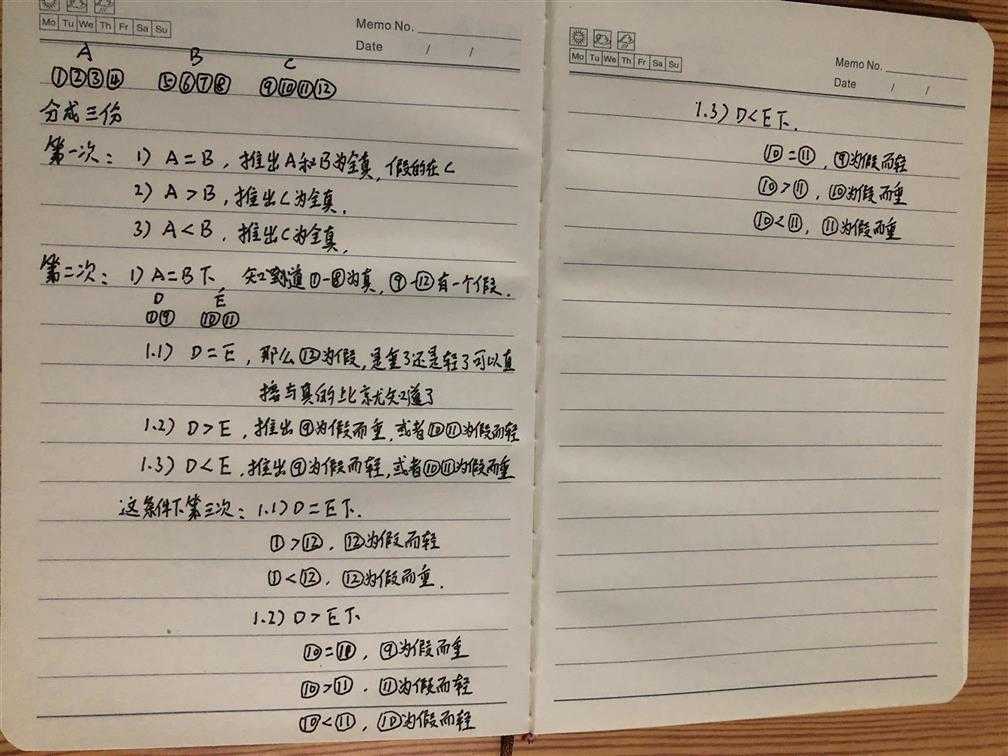 Mo Tu We Th Fr Sa Su
Memo No.
Date / /
A B C
①②③④ ⑤⑥⑦⑧ ⑨⑩⑪⑫
分成三份
第一次: 1) A=B, 推出A和B为全真, 假的在C
2) A>B, 推出C为全真.
3) A<B, 推出C为全真.
第二次: 1) A=B下, 知道①-⑧为真, ⑨-⑫有一个假.
D E
①⑨ ⑩⑪
1.1) D=E, 那么⑫为假, 是重了还是轻了可以直
接与真的比就知道了
1.2) D>E, 推出⑨为假而重, 或者⑩⑪为假而轻
1.3) D<E, 推出⑨为假而轻, 或者⑩⑪为假而重
这条件下第三次: 1.1) D=E下.
①>⑫, ⑫为假而轻
①<⑫, ⑫为假而重.
1.2) D>E下
⑩=⑪, ⑨为假而重
⑩>⑪, ⑪为假而轻
⑩<⑪, ⑩为假而轻
Mo Tu We Th Fr Sa Su
Memo No.
Date / /
1.3) D<E下.
⑩=⑪, ⑨为假而轻
⑩>⑪, ⑩为假而重
⑩<⑪, ⑪为假而重